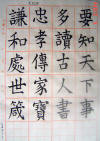 要知天下事
多讀古人書
忠孝傳家寶
謙和處世箴